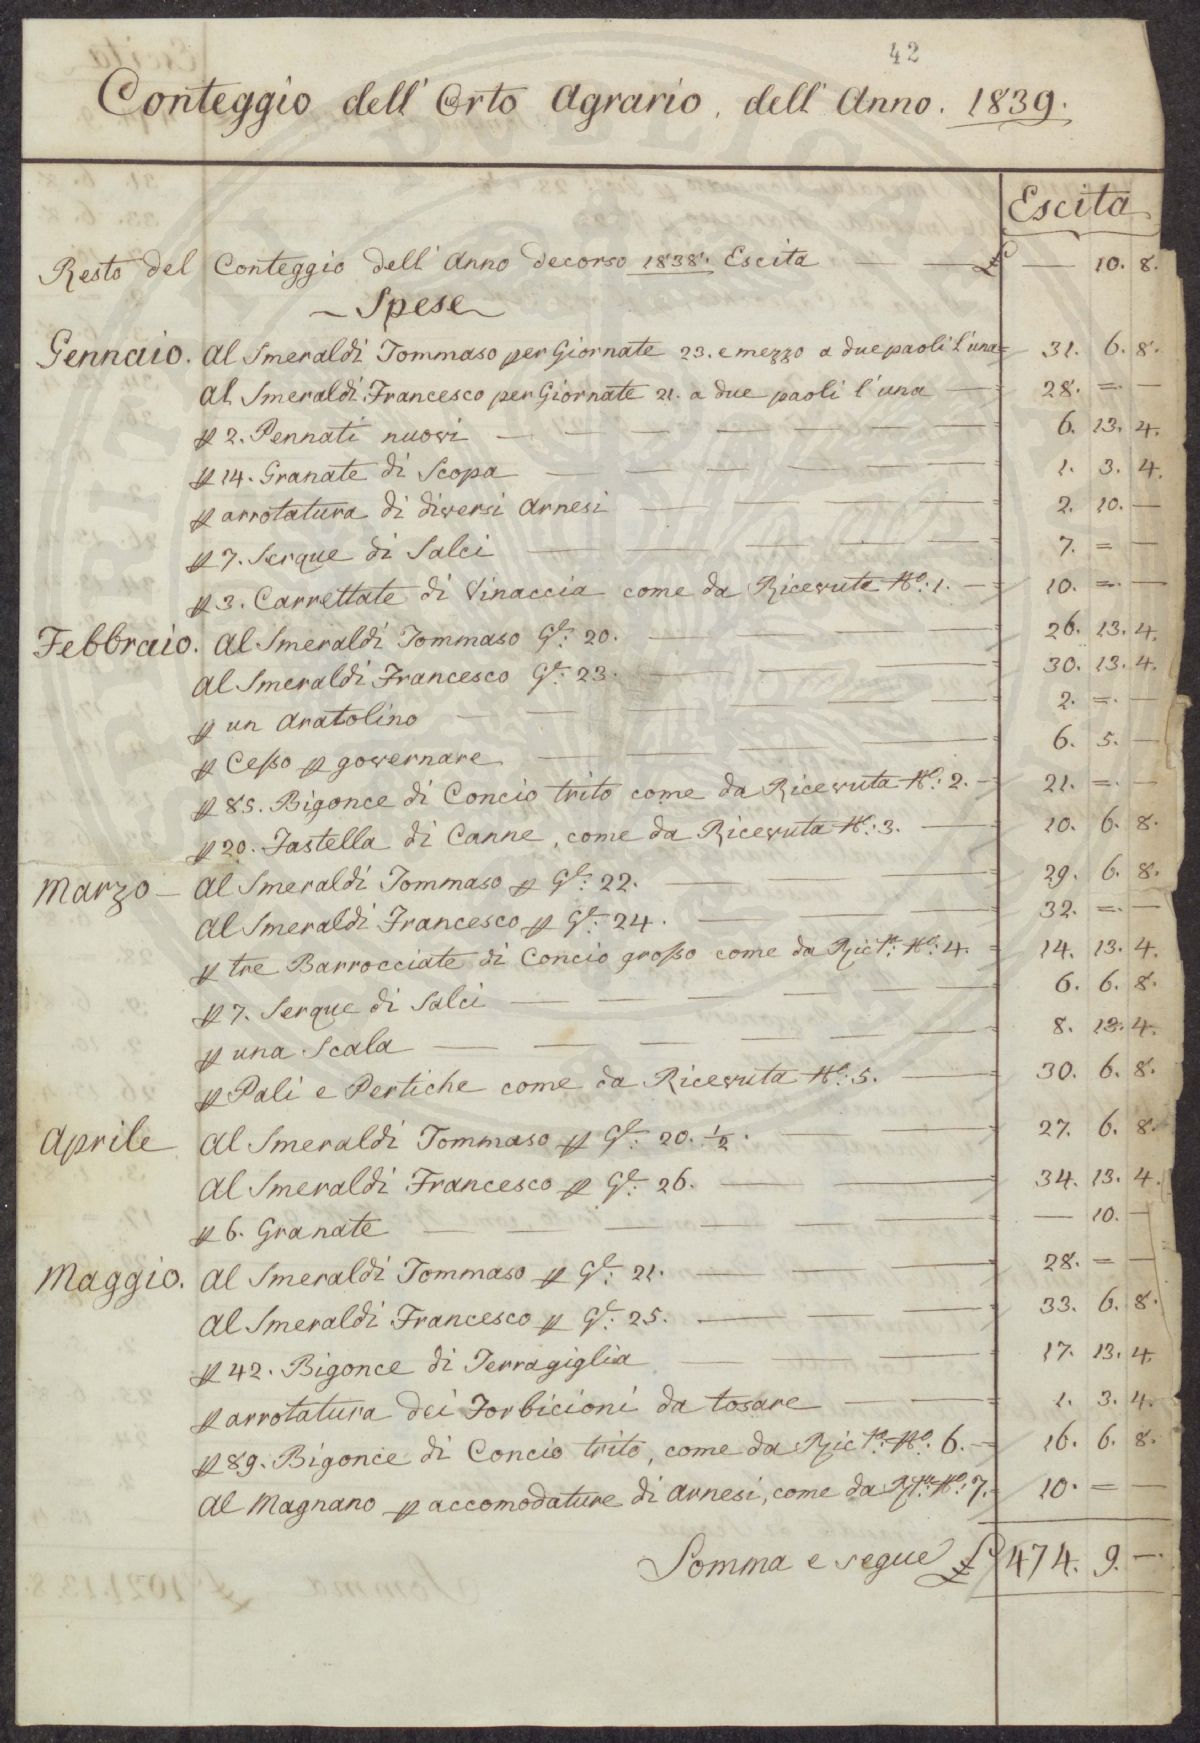 42
Conteggio dell' Orto Agrario, dell' Anno. 1839.
Escita
Resto del Conteggio dell' Anno decorso 1838. Escita — — £ — 10. 8.
~ Spese ~
Gennaio. Al Smeraldi Tommaso per Giornate 23. e mezzo a due paoli l'una = 31. 6. 8.
Al Smeraldi Francesco per Giornate 21. a due paoli l'una — 28. = —
p 2. Pennati nuovi — — — — — — — 6. 13. 4.
p 14. Granate di Scopa — — — — — — 1. 3. 4.
p arrotatura di diversi Arnesi — — — — 2. 10. —
p 7. Serque di Salci — — — — — — 7. = —
p 3. Carrettate di Vinaccia come da Ricevuta N.º: 1. — 10. =. —
Febbraio. Al Smeraldi Tommaso G.e: 20. — — — 26. 13. 4.
Al Smeraldi Francesco G.e: 23. — — — 30. 13. 4.
p un Aratolino — — — — — — 2. =. —
p Cesso p governare — — — — 6. 5. —
p 85. Bigonce di Concio trito come da Ricevuta N.º: 2. — 21. =. —
p 20. Fastella di Canne, come da Ricevuta N.º: 3. — 10. 6. 8.
Marzo — Al Smeraldi Tommaso p G.e: 22. — — — 29. 6. 8.
Al Smeraldi Francesco p G.e: 24. — — 32. =. —
p tre Barrocciate di Concio grosso come da Ric.ta: N.º: 4. — 14. 13. 4.
p 7. Serque di Salci — — — — — — 6. 6. 8.
p una Scala — — — — — — 8. 13. 4.
p Pali e Pertiche come da Ricevuta N.º: 5. — 30. 6. 8.
Aprile Al Smeraldi Tommaso p G.e: 20. 1/2. — — 27. 6. 8.
Al Smeraldi Francesco p G.e: 26. — — 34. 13. 4.
p 6. Granate — — — — — — — 10. —
Maggio. Al Smeraldi Tommaso p G.e: 21. — — — 28. = —
Al Smeraldi Francesco p G.e: 25. — — 33. 6. 8.
p 42. Bigonce di Terragiglia — — — 17. 13. 4.
p arrotatura dei Forbicioni da tosare — — — 1. 3. 4.
p 89. Bigonce di Concio trito, come da Ric.ta: N.º: 6. — 16. 6. 8.
Al Magnano p accomodature di Arnesi, come da R.ta: N.º: 7. 10. = —
Somma e segue £ 474. 9. —